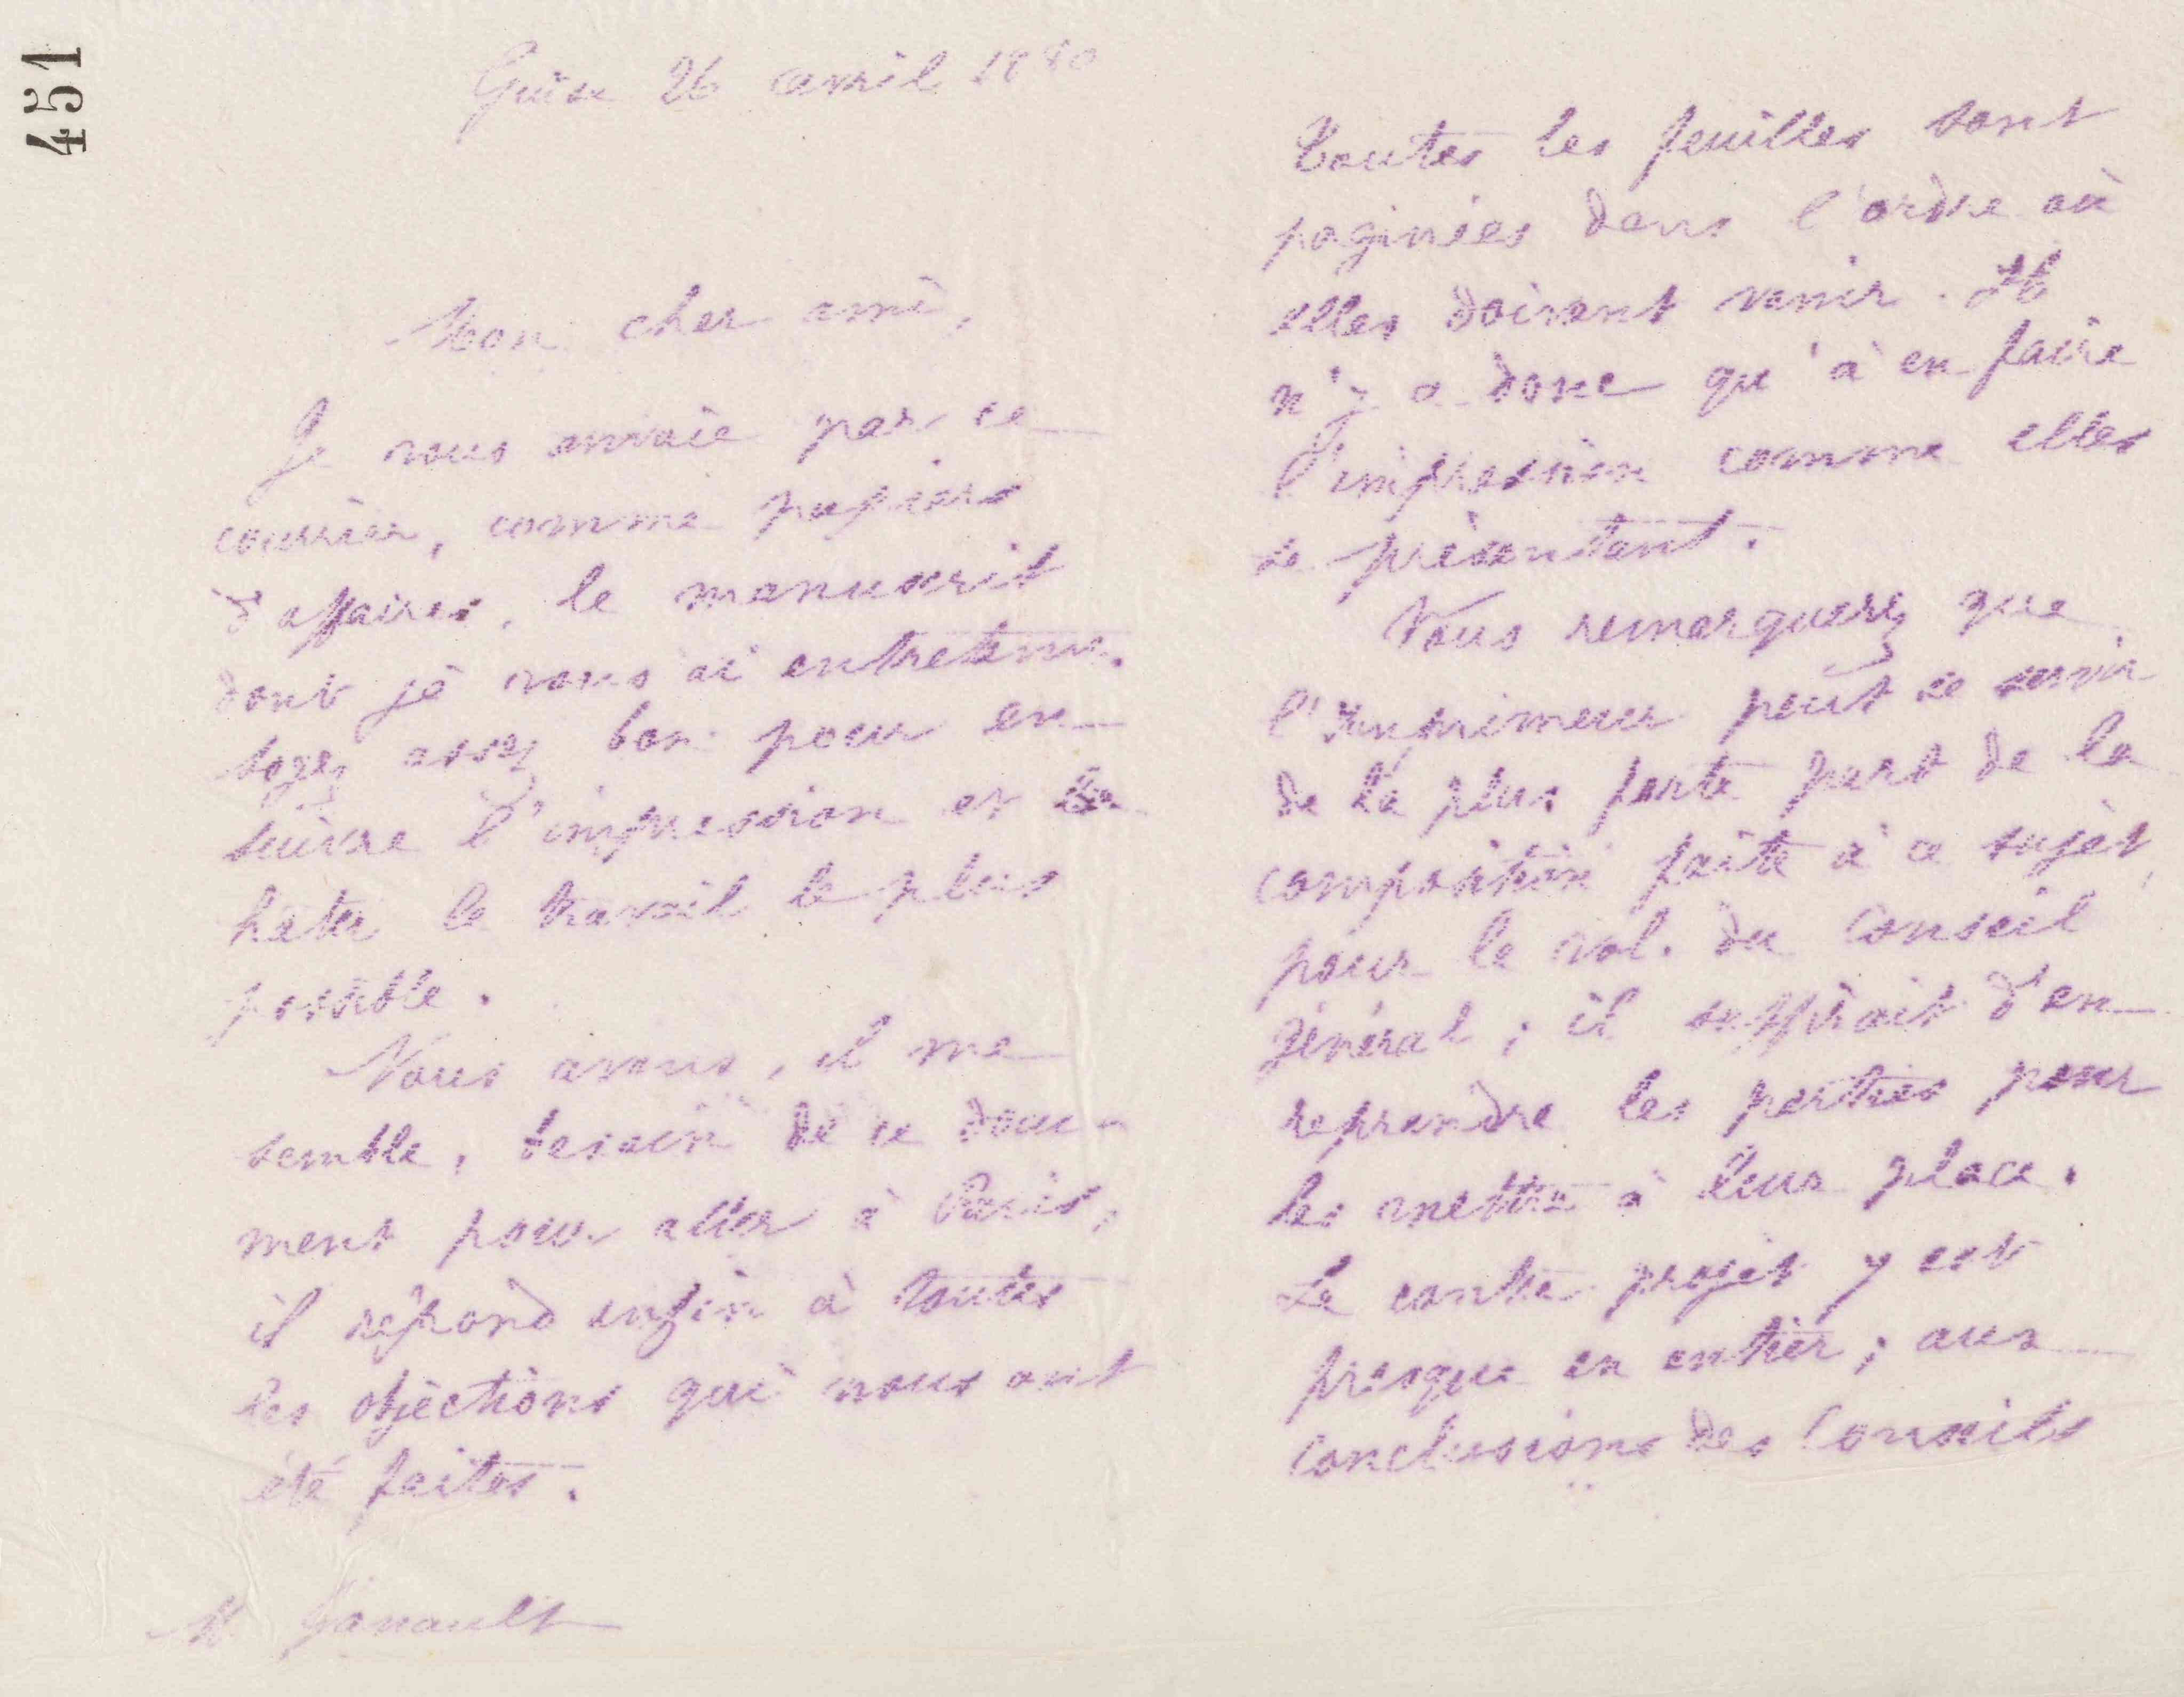 451
Guise 26 avril 1880
Mon cher ami,
Je vous envoie par ce
courrier, comme papiers
d'affaires, le manuscrit
dont je vous ai entretenu.
Soyez assez bon pour en
suivre l'impression et
hâter le travail le plus
possible.
Nous avons, il me
semble, besoin de ce docu-
ment pour aller à Paris,
il répond enfin à toutes
les objections qui nous ont
été faites.
M
Toutes les feuilles sont
paginées dans l'ordre où
elles doivent venir. Il
n'y a donc qu'à en faire
l'impression comme elles
se présentent.
Vous remarquerez que
l'imprimeur peut se servir
de la plus forte part de la
composition faite à ce sujet,
pour le vol. du Conseil
général ; il suffirait d'en
reprendre les parties pour
les mettre à leur place.
Le contre projet y est
presque en entier ; aux
conclusions des Conseils